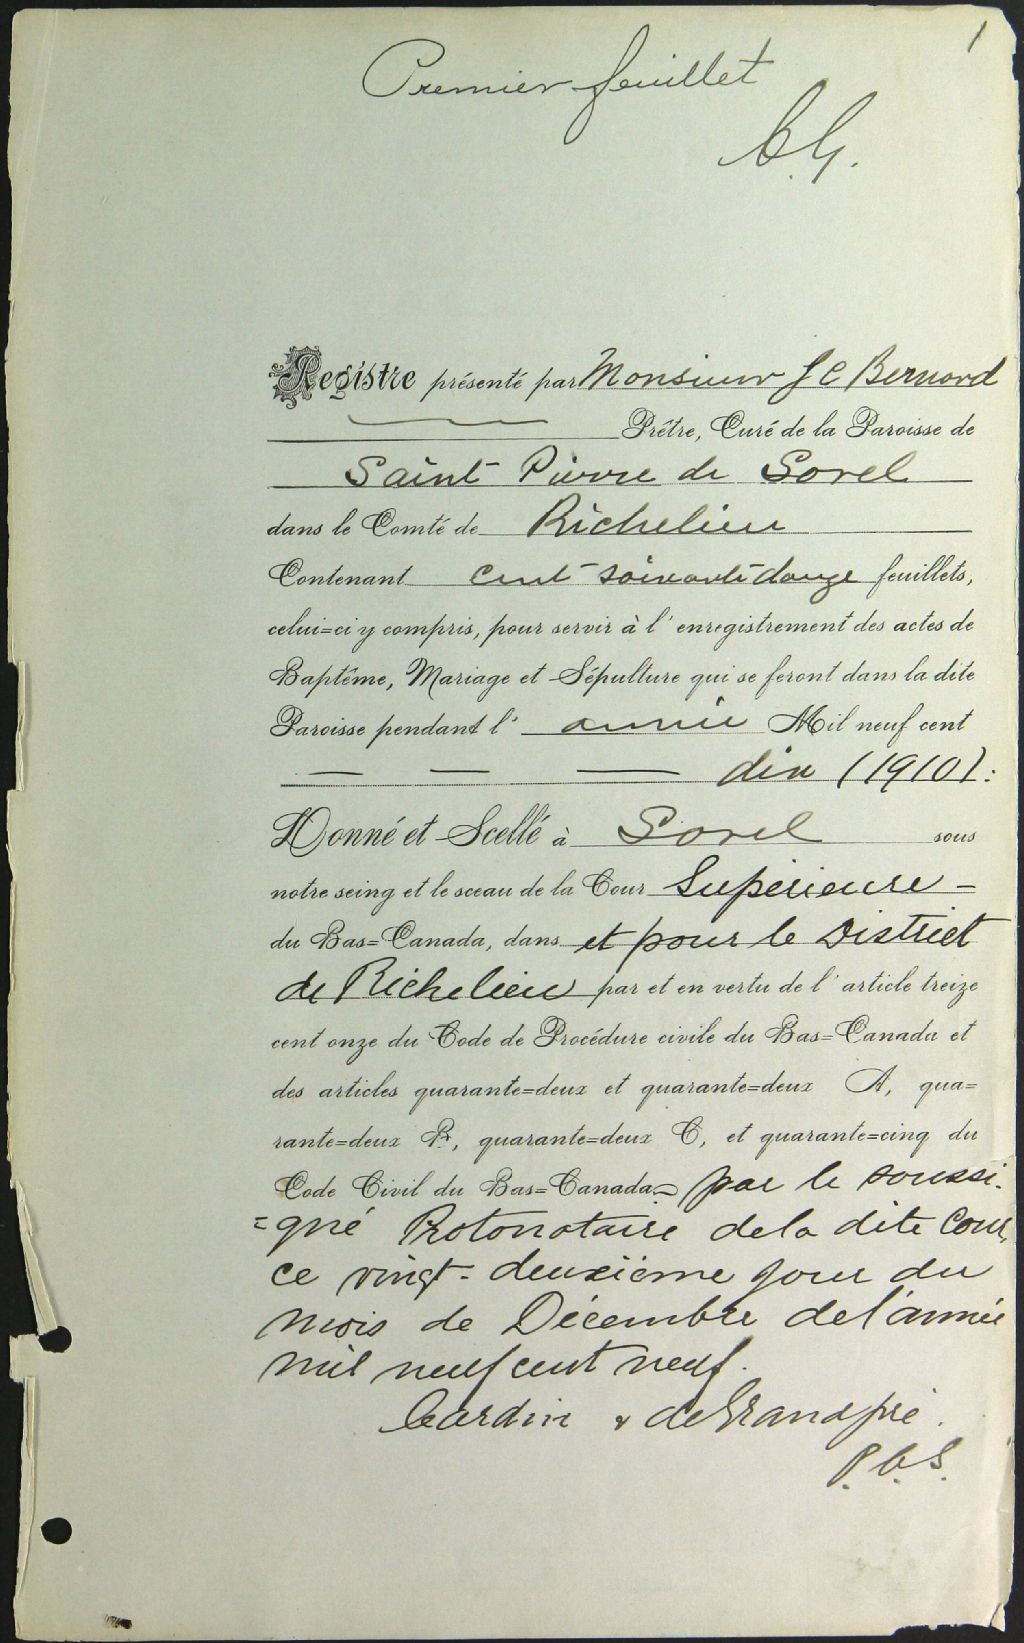 1
Premier feuillet
C. G.
Registre présenté par Monsieur J C Bernard
Prêtre, Curé de la Paroisse de
Saint Pierre de Sorel
dans le Comté de Richelieu
Contenant cent soixante douze feuillets,
celui=ci y compris, pour servir à l'enregistrement des actes de
Baptême, Mariage et Sépulture qui se feront dans la dite
Paroisse pendant l' année Mil neuf cent
dix (1910):
Donné et Scellé à Sorel sous
notre seing et le sceau de la Cour Supérieure -
du Bas=Canada, dans et pour le District
de Richelieu par et en vertu de l'article treize
cent onze du Code de Procédure civile du Bas=Canada et
des articles quarante=deux et quarante=deux A, qua=
rante=deux B, quarante=deux C, et quarante=cinq du
Code Civil du Bas=Canada= par le soussi-
=gné Protonotaire de la dite Cour,
ce vingt-deuxième jour du
mois de Décembre de l'année
mil neuf cent neuf.
Cardin & deGrandpré.
P.C.S.